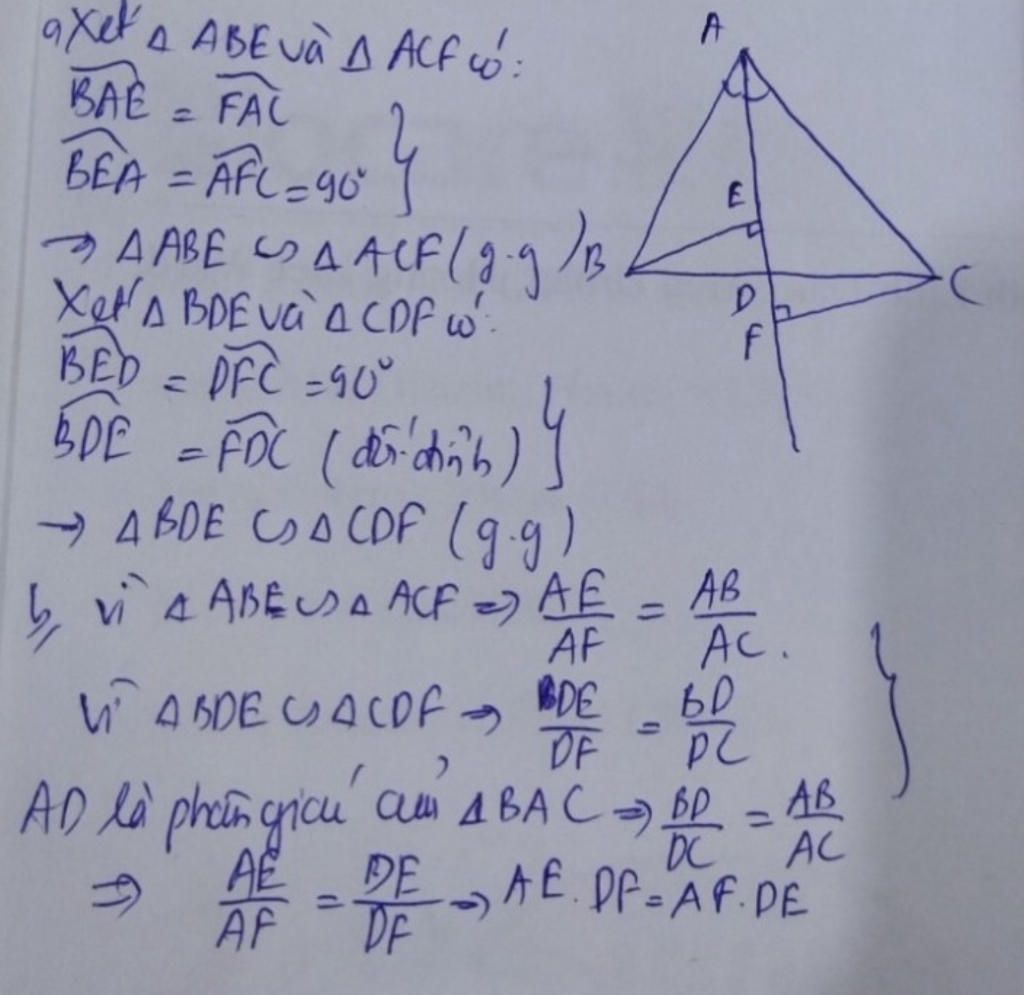 a, Xét Δ ABE và Δ ACF có:
BAE = FAC
BEA = AFC = 90°
→ Δ ABE ∽ Δ ACF (g.g)
Xét Δ BDE và Δ CDF có:
BED = DFC = 90°
BDE = FDC (đối đỉnh)
→ Δ BDE ∽ Δ CDF (g.g)
b, vì Δ ABE ∽ Δ ACF ⇒ AE/AF = AB/AC.
vì Δ BDE ∽ Δ CDF → DE/DF = BD/DC
AD là phân giác của Δ BAC ⇒ BD/DC = AB/AC
⇒ AE/AF = DE/DF → AE.DF = AF.DE
A
E
B
C
D
F